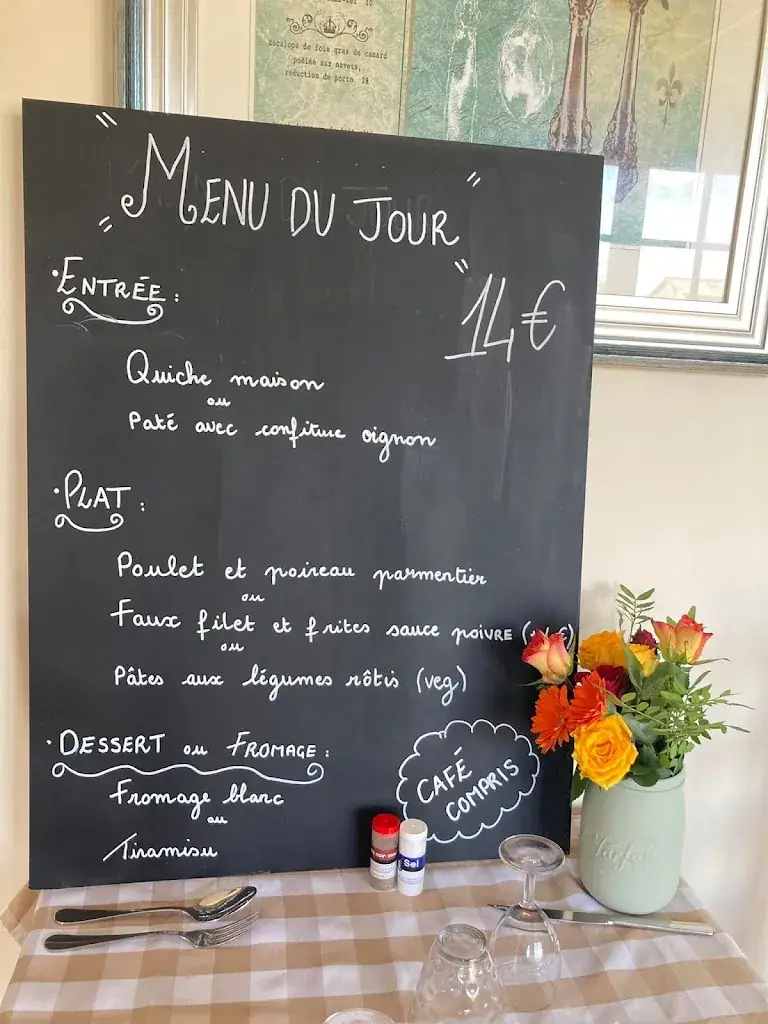 escalope de foie gras de canard
poêlée aux navets,
réduction de porto. 18
MENU DU JOUR
14€
• ENTRÉE :
Quiche maison
ou
Paté avec confiture oignon
• PLAT :
Poulet et poireau parmentier
ou
Faux filet et frites sauce poivre
ou
Pâtes aux légumes rôtis (veg)
• DESSERT ou FROMAGE :
Fromage blanc
ou
Tiramisu
CAFÉ
COMPRIS
Sel